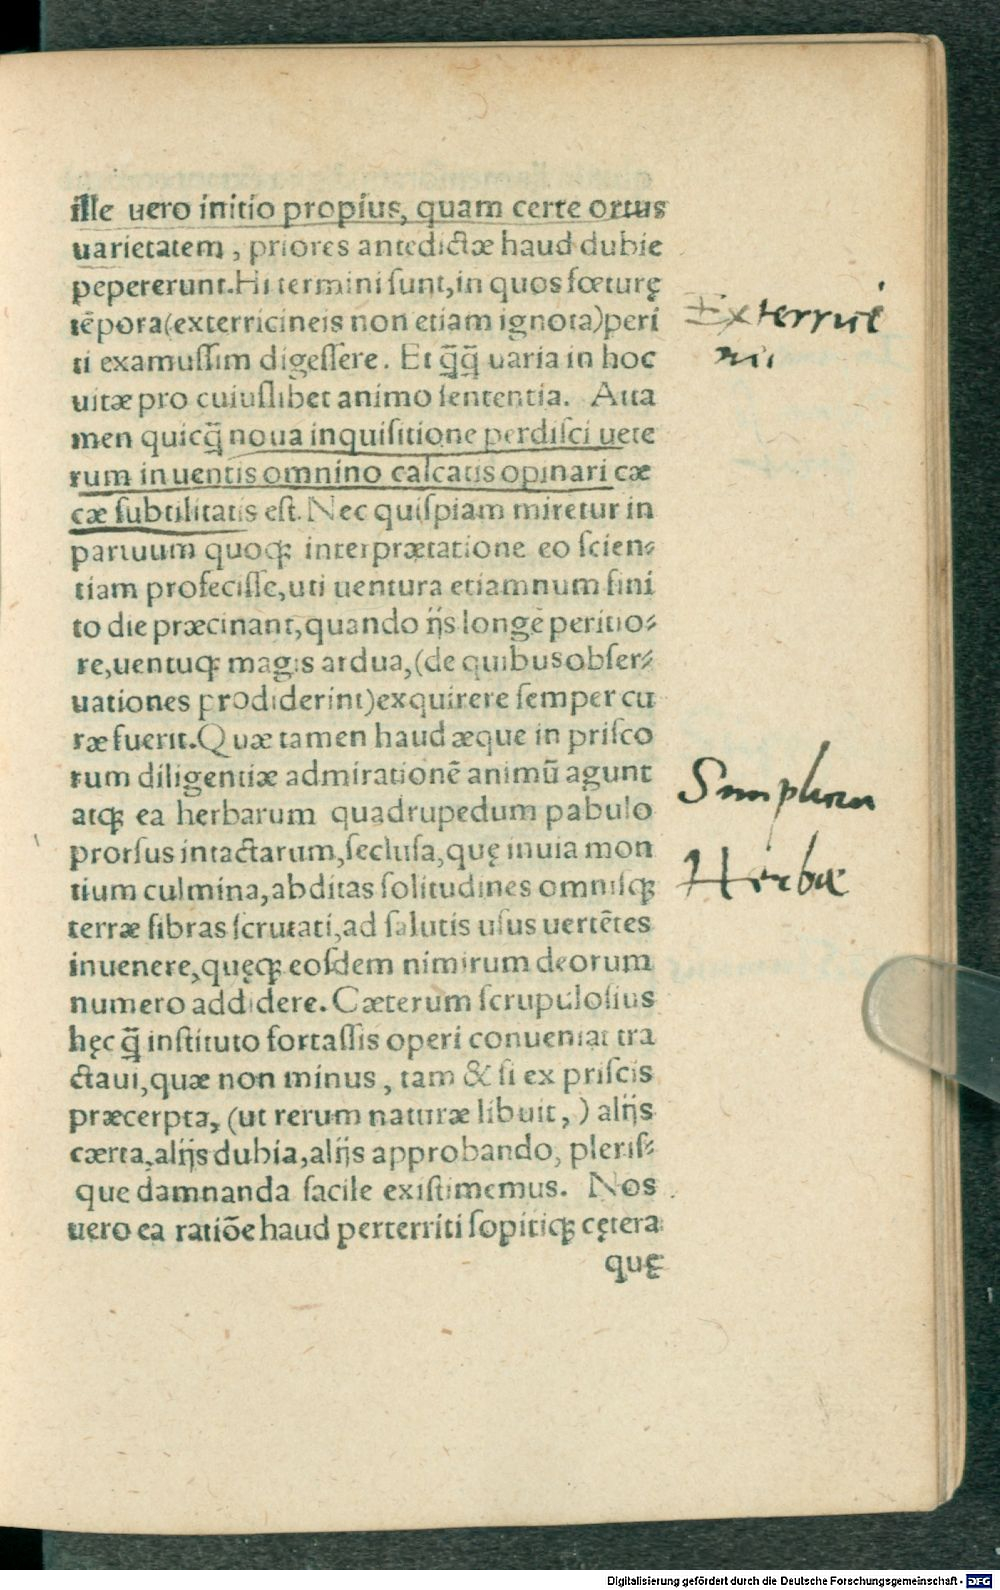 ille uero initio propius, quam certe ortus
uarietatem, priores antedictæ haud dubie
pepererunt. Hi termini sunt, in quos fœturę
tēpora (exterricineis non etiam ignota) peri
ti examussim digessere. Et q̄q̄ uaria in hoc
uitæ pro cuiuslibet animo sententia. Atta
men quicq̄ noua inquisitione perdisci uete
rum inuentis omnino calcatis opinari cæ
cæ subtilitatis est. Nec quispiam miretur in
partuum quoq; interprætatione eo scien⸗
tiam profecisse, uti uentura etiamnum fini
to die præcinant, quando ijs longe peritio⸗
re, uentuq; magis ardua, (de quibus obser⸗
uationes prodiderint) exquirere semper cu
ræ fuerit. Quæ tamen haud æque in prisco
rum diligentiæ admirationē animū agunt
atq; ea herbarum quadrupedum pabulo
prorsus intactarum, seclusa, quę inuia mon
tium culmina, abditas solitudines omnisq;
terræ fibras scrutati, ad salutis usus uertētes
inuenere, quęq; eosdem nimirum deorum
numero addidere. Cæterum scrupulosius
hęc q̄ instituto fortassis operi conueniat tra
ctaui, quæ non minus, tam & si ex priscis
præcerpta, (ut rerum naturæ libuit,) alijs
cærta, alijs dubia, alijs approbando, pleris⸗
que damnanda facile existimemus. Nos
uero ea ratiōe haud perterriti sopitiq; cętera
quę
Exterrici
nii
Simplicium
Herbæ
Digitalisierung gefördert durch die Deutsche Forschungsgemeinschaft - DFG